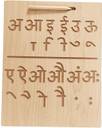 अ आ इ ई उ ऊ
ा ि ी ु ू
ए ऐ ओ औ अं अः
े ै ो ौ ं ः